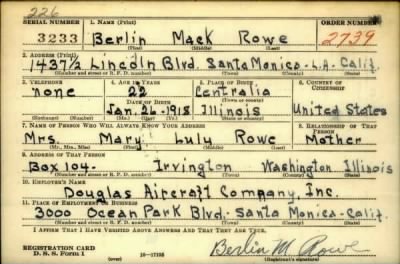 226
SERIAL NUMBER 1. NAME (Print) ORDER NUMBER
3233 Berlin Mack Rowe 2739
(First) (Middle) (Last)
2. ADDRESS (Print)
1437½ Lincoln Blvd. Santa Monica - L.A. Calif.
(Number and street or R. F. D. number) (Town) (County) (State)
3. TELEPHONE 4. AGE IN YEARS 5. PLACE OF BIRTH 6. COUNTRY OF CITIZENSHIP
none 22 Centralia
DATE OF BIRTH (Town or county)
Jan. 26 - 1918 Illinois United States
(Mo.) (Day) (Yr.) (State or country)
7. NAME OF PERSON WHO WILL ALWAYS KNOW YOUR ADDRESS 8. RELATIONSHIP OF THAT PERSON
Mrs. Mary Lulu Rowe Mother
(Mr., Mrs., Miss) (First) (Middle) (Last)
9. ADDRESS OF THAT PERSON
Box 104 - Irvington Washington Illinois
(Number and street or R. F. D. number) (Town) (County) (State)
10. EMPLOYER'S NAME
Douglas Aircraft Company, Inc.
11. PLACE OF EMPLOYMENT OR BUSINESS
3000 Ocean Park Blvd - Santa Monica - Calif.
(Number and street or R. F. D. number) (Town) (County) (State)
I AFFIRM THAT I HAVE VERIFIED ABOVE ANSWERS AND THAT THEY ARE TRUE.
REGISTRATION CARD
D. S. S. Form 1 16-17105 Berlin M. Rowe